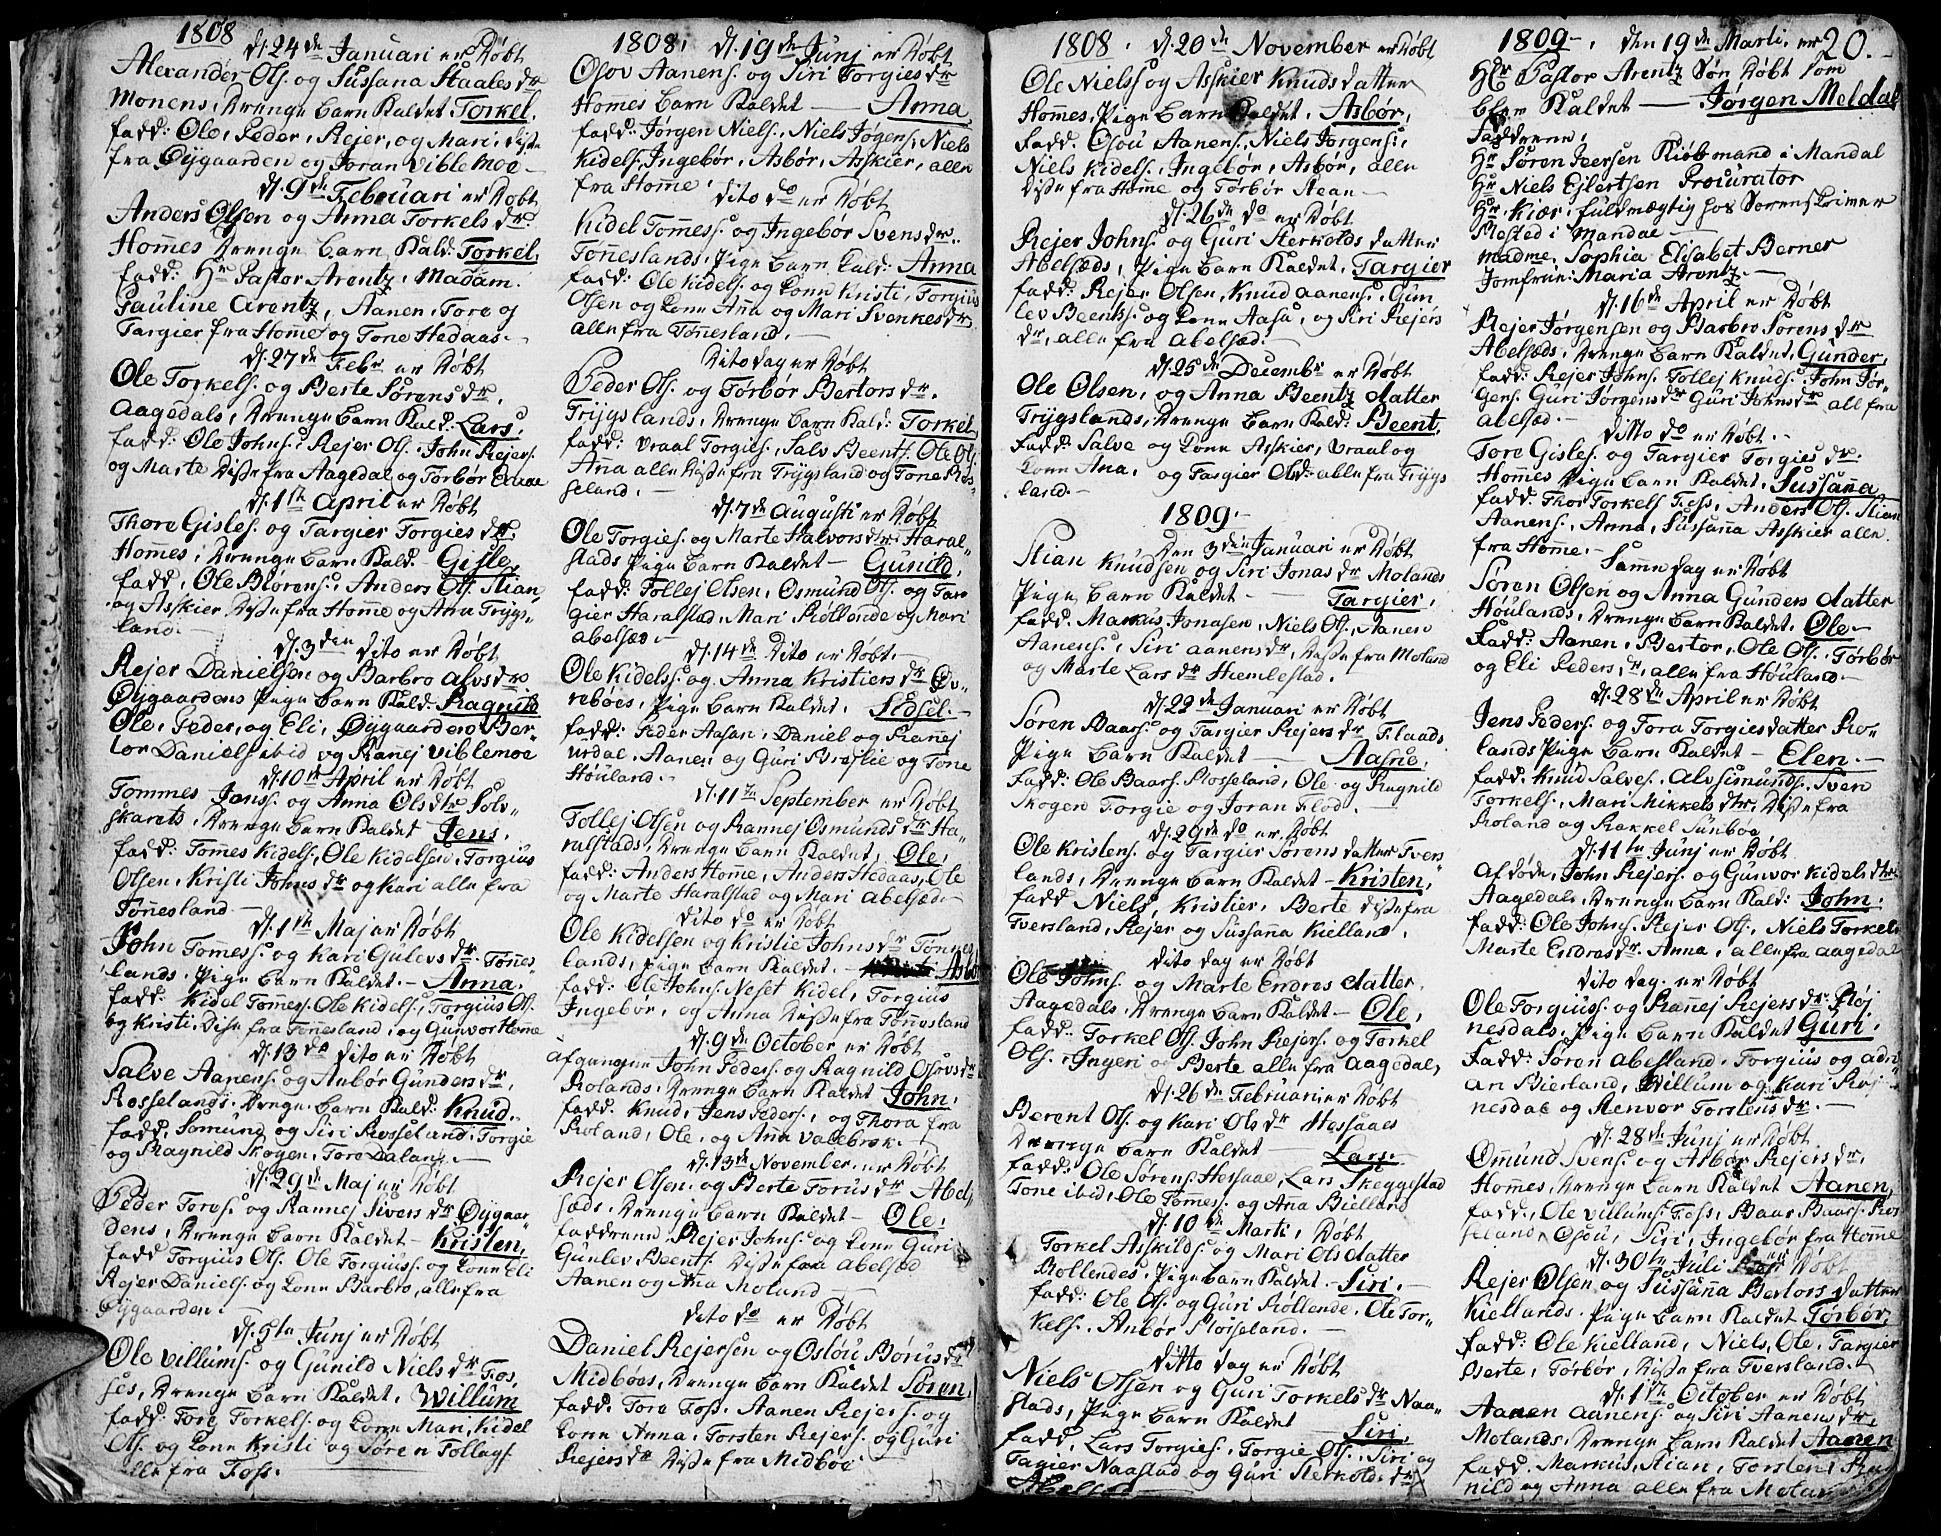 1808
d. 24de Januari er Døbt
Alexander Ols. og Sussana Staalesdr
Monens, Drenge Barn Kaldet Torkel.
fadd: Ole, Peder, Rejer, og Mari, disse
fra Øygaarden og Joran Viblemoe
d. 9de Februari er Døbt
Anders Olsen og Anna Torkelsdr
Hommes Drenge Barn Kald: Torkel,
fadd: Hr Pastor Arentz, Madam
Pauline Arentz, Aanen, Tore og
Targier fra Homme og Tone Hedaas.
d. 27de Febr er Døbt
Ole Torkels. og Berte Sørensdr.
Aagedals, Drenge Barn Kald. Lars,
fadd: Ole Johns. Rejer Ols. John Rejers.
og Marte disse fra Aagedal og Torbor
d. 1ste April er Døbt
Thore Gisles. og Targier Torgiesdr.
Hommes, Drenge Barn Kald. Gisle,
fadd, Ole Børens. Anders Ols. Stian
og Asskier, disse fra Homme og Anna Trygs-
land.
d. 3den dito er Døbt
Rejer Danielsen og Barbro Alvsdr
Øygaardens Pige Barn Kald. Ragnild
Ole, Peder, og Eli, Øygaarden Ber-
tor Daniels ibid og Ranej Viblemoe
d. 10de April er Døbt
Tommes Jens. og Anna Olsdtr Solv-
skarets, Drenge Barn Kaldet Jens.
fadd: Tommes Kidels, Ole Kidelsen, Torgius
Olsen, Kristi Johnsdr og Kari alle fra
Tønnesland
d. 1ste Maj er Døbt
John Tommess. og Kari Gulevsdr. Tønnes-
lands. Pige Barn Kaldet - Anna.
fadd: Kidel Tommes. Ole Kidels, Torgius Ols.
og Kristi, disse fra Tønnesland, og Gunvor Homme
d. 13de dito er Døbt
Salve Aanens. og Anbør Gundersdr,
Rosselands, Drenge Barn Kald. Knud.
fadd. Somund og Siri Rosseland, Torgie
og Ragnild Skogen, Tore Dalane.
d. 29de Maj er Døbt
Peder Tores. og Rannej Siversdr Øygaar-
dens, Drenge Barn Kaldet - Kristen,
fadd Torgius Ols. Ole Torgiuss. og Kone Eli
Rejer Daniels. og Kone Barbro, alle fra
Øygaarden.
d. 5te Junj er Døbt
Ole Villums. og Gunild Nielsdr Fos-
ses, Drenge Barn Kaldet, Willum
fadd: Tore Torkels. og Kone Mari, Kidel
Ols. og Kone Kristi og Søren Tollags.
alle fra Foss.
1808, d. 19de Junj er Døbt
Osov Aanens. og Siri Torgiesdr
Hommes Barn Kaldet - Anna,
fadd: Jørgen Niels, Niels Jøgens, Niels
Kidels, Ingebør, Asbør, Asskier, alle
fra Homme.
dito do er Døbt
Kidel Tommess. og Ingebør Svensdr.
Tønneslands, Pige Barn Kald: Anna
fadd: Ole Kidels. og Kone Kristi, Torgius
Olsen og Kone Anna og Mari Svenkesdr,
alle fra Tønnesland.
Dito dag er Døbt
Peder Ols. og Torbor Bertorsdr.
Trygslands, Drenge Barn Kald: Torkel,
fadd: Vraal Torgies, Salv Beents. Ole Ols.
Anna alle disse fra Trygsland og Tone Ros-
seland.
d. 7de Augusti er Døbt
Ole Torgies. og Marte Halvorsdtr Haral-
stads Pige Barn Kaldet - Gunild,
fadd: Tollej Olsen, Osmund Ols. og Tar-
gier Haralstad, Mari Røllende og Mari
Abelsæd
d. 14de Dito er Døbt.
Ole Kidels. og Anna Kristiensdr Øv-
rebøes, Pige Barn Kaldet. Sidsel.
fadd: Peder Aasan, Daniel og Ranej
Urdal, Aanen og Guri Breilie og Tone
Houland.
d. 11te September er Døbt
Tollej Olsen og Rannej Osmundsdr Ha-
ralstads, Drenge Barn Kaldet, Ole,
fadd: Anders Home, Anders Hedaas, Ole
og Marte Haralstad og Mari Abelsæd.
Dito do er Døbt
Ole Kidelsen og Kristie Johnsdr Tønnes-
lands, pige Barn Kaldet. - Asbør
fadd: Ole Johns. Neset Kidel, Torgius
Ingebør, og Anna disse fra Tønnesland
d. 9de October er Døbt
Afgangne John Peders. og Ragnild Osovsdr
Rolands, Drenge Barn Kaldet John,
fadd. Knud, Jens Peders, og Thora fra
Roland, Ole, og Anna Vallebrok.
d. 13de November. er Døbt
Rejer Olsen. og Berte Torusdr Abel-
sæds. Drenge Barn Kaldet - Ole,
faddrene, Rejer Johns, og Kone Guri
Gunlev Beents, disse fra Abelsæd
Aanen og Ana Moland
dito do er Døbt
Daniel Rejersen og Oslou Børusdr
Midbøes, Drenge Barn Kaldet Søren,
fadd. Tore Foss, Aanen Rejers. og
Kone Anna, Torsten Rejers. og Guri
Rejersdr disse fra Midbøe
1808. d. 20de November er Døbt
Ole Niels. og Asskier Knudsdatter
Hommes, Pige Barn Kaldet, Asbør,
fadd. Osou Aanens, Niels Jørgens,
Niels Kidels, Ingebør, Asbør, allen
disse fra Homme og Torbør Aean
d. 26de do er Døbt
Rejer Johns. og Guri Sterkolds datter
Abelsæds, Pige Barn Kaldet, Targier
fadd: Rejer Olsen, Knud Aanens, Gun
lev Beents. og Kone Aasa, og Siri Rejers
dr. alle fra Abelsæd.
d. 25de Decembr er Døbt
Ole Olsen, og Anna Beentz datter
Trygslands, Drenge Barn Kald: Beent,
fadd: Salve og Kone Asskier, Vraal og
Kone Ana, og Targier Olsd: alle fra Trygs
land.
1809.
Den 3die Januari er Døbt
Stian Knudsen og Siri Jonasdr Molands
Pige Barn Kaldet - Targier,
fadd. Markus Jonasen, Niels Ols, Aanen
Aanens. Siri Aanensdr, disse fra Moland
og Marte Larsdr Hemlestad.
d. 22de Januari er Døbt
Søren Baars. og Targier Rejersdr Flaads
Pige Barn Kaldet - Aasne,
fadd: Ole Baars. Rosseland, Ole og Ragnild
Skogen Torgie og Joran Flod.
d. 29de do er Døbt
Ole Kristens. og Targier Sørens datter Tvers
lands, Drenge Barn Kaldet - Kristen,
fadd Niels, Kristier, Berte disse fra
Tversland, Rejer og Sussana Kielland,
Dito dag er Døbt
Ole Johns. og Marte Endres datter,
Aagedals, Drenge Barn Kaldet - Ole,
fadd: Torkel Ols. John Rejers. og Torkel
Ols. Ingeri og Berte alle fra Aagedal,
d. 26de Februari er Døbt
Berent Ols. og Kari Olsdr Hessaaes
Drenge Barn Kaldet - Lars
fadd: Ole Sørens, Hessaae, Lars Skeggestad
Tone ibid, Ole Tommes. og Ana Bielland
d. 10de Marti, Døbt
Torkel Asskilds. og Mari Ols datter
Bollendes, Pige Barn Kaldet - Siri,
fadd: Ole Ols. og Guri Røllende. Ole Tor-
kels. Anbør Rosseland.
Ditto dag er Døbt
Niels Olsen og Guri Torkelsdr Naa-
stads, Pige Barn Kaldet Siri,
fadd, Lars Torgies. Torgie Ols. Siri og
Tagier Naastad og Guri Sterkolds dr
Abelsæd
1809, den 19de Marti, er 20.
Hr Pastor Arentz Søn Døbt som
blev Kaldet - Jørgen Meldal
Faddrene,
Hr Søren Peersen Kiøbmand i Mandal
Hr Niels Ejlertsen Procurator
Hr. Kiær, fuldmægtig hos Sorenskriver
Plested i Mandal
Madme. Sophia Elisabet Berner
Jomfrue: Maria Arentz.
d. 16de April er Døbt
Rejer Jørgensen og Barbro Sørensdr
Abelsæds, Drenge Barn Kaldet, Gunder,
fadd: Rejer Johns. Tollej Knuds. John Jør-
gens. Guri Jørgensdr Guri Johnsdr all fra
Abelsæd.
ditto do er Døbt.
Tore Gisles. og Targier Torgiesdr.
Hommes Pige Barn Kaldet, Sussana
fadd: Thor Torkels Foss, Anders Ols. Stian
Aanens, Anna, Sussana Asskier alle
fra Homme.
Same dag er Døbt
Søren Olsen og Anna Gunders datter
Houlands, Drenge Barn Kaldet, Ole
Fadd: Aanen, Bertor, Ole Ols. Torbør
og Eli Pedersdr, alle fra Houland.
d. 28de April er Døbt
Jens Peders. og Tora Torgiesdatter Ro-
lands, Pige Barn Kaldet - Elen.
fadd: Knud Salves. Alv Simunds. Sven
Torkels. Mari Mikkelsdtr, disse fra
Roland og Rakkel Sunboe
d. 11te Junj er Døbt
Afdøde, John Rejers. og Gunvor Kidelsdtr
Aagedals, Drenge Barn Kald: John,
fadd: Ole Johns. Rejer Ols, Niels Torkels.
Marte Endresdr. Anna, alle fra Aagedal
dito dag er Døbt
Ole Torgiuss. og Rannej Rejersdr Røj
nesdals, Pige Barn Kaldet Guri,
fadd: Søren Abelland, Torgius og Adri
an Bierland, Willum og Kari Røj-
nesdal og Renvor Torstensdr.
d. 28de Junj er Døbt
Ommund Svens. og Asbør Rejersdr.
Hommes, Drenge Barn Kaldet Aanen,
fadd, Ole Villums. Foss, Baar Baars. Ros
seland, Osou, Siri, Ingebør fra Homme
d. 30te Juli er Døbt
Rejer Olsen og Sussanna Bertors datter
Kiellands, Pige Barn Kaldet Torbør,
fadd: Ole Kielland, Niels, Ole, Targier
Berte, Torbør, disse fra Tversland.
d. 1ste October er Døbt
Aanen Aanens. og Siri Aanensdr.
Molands, Drenge Barn Kaldet Aanen
fadd: Markus, Stian, Torsten, Rag
nild og Anna alle fra Moland